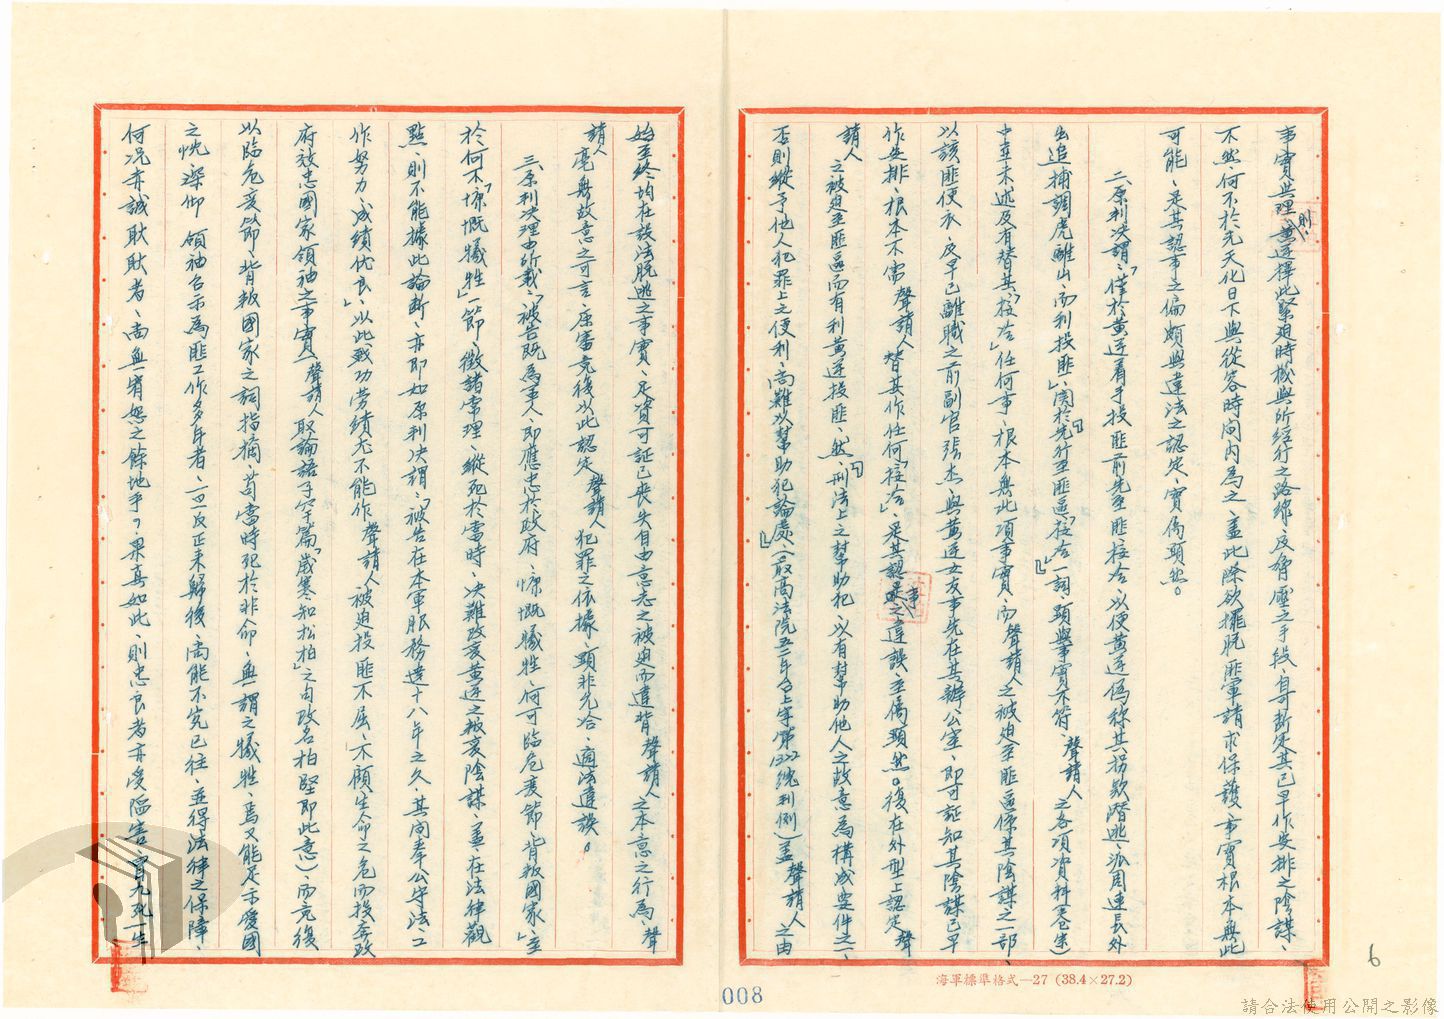 事實與理則、黃逆擇此緊迫時機與所經行之路線、及脅壓之手段、自可斷定其已早作安排之陰謀、
不然何不於光天化日下與從容時間內為之、蓋此際欲擺脫匪軍請求保護、事實根本無此
可能、是其認事之偏頗與違法之認定、實偽顯然。
二、原判決謂、「僅於黃逆着手投匪前先至匪接洽、以便黃逆偽稱其拐款潛逃、派周連長外
出追捕調虎離山、而利投匪」、關於『先行至匪區「接洽」』一詞、顯與事實不符、聲請人之各項資料(在案)
中並未述及有替其「接洽」任何事、根本無此項事實、而聲請人之被迫至匪區係其陰謀之一部、
以該匪便衣、及早已離職之前副官張杰、與黃逆女友事先在其辦公室、即可証知其陰謀已早
作安排、根本不需聲請人替其作任何「接洽」、是其認事之違誤、至偽顯然。復在外型上認定聲
請人之被迫至匪區而有利黃逆投匪、然「刑法上之幫助犯、以有幫助他人之故意為構成要件之一、
否則縱予他人犯罪上之便利、尚難以幫助犯論處、(最高法院五二年台上字第1322號判例)」蓋聲請人之由
始至終均在設法脫逃之事實、足資可証已喪失自由意志之被迫而違背聲請人之本意之行為、聲
請人毫無故意之可言、原審竟復以此認定聲請人犯罪之依據、顯非允洽、適法違誤。
三、原判決理由所載、「被告既為軍人、即應忠於政府、慷慨犧牲、何可臨危變節、背叛國家、」至
於何不「慷慨犧牲」一節、徵諸常理、縱死於當時、決難改變黃逆之叛變陰謀、蓋在法律觀
點、則不能據此論斷、亦即如原判決謂、「被告在本軍服務達十八年之久、其間奉公守法、工
作努力、成績優良」、以此戰功勞績无不能作聲請人被迫投匪不屈、不顧生命之危而投奔政
府效忠國家領袖之事實、(聲請人取論語子罕篇「歲寒知松柏」之句改名柏堅即此意)、而竟復
以臨危變節、背叛國家之詞指摘、苟當時死於非命、無謂之犧牲、焉又能足示愛國
之忱、深仰 領袖召示為匪工作多年者、一旦反正來歸後、尚能不究已往、並得法律之保障、
何況赤誠耿耿者、尚無宥恕之餘地乎?果真如此、則忠良者亦受陷害、冒九死一生
海軍標準格式—27 (38.4×27.2)
008
6
請合法使用公開之影像